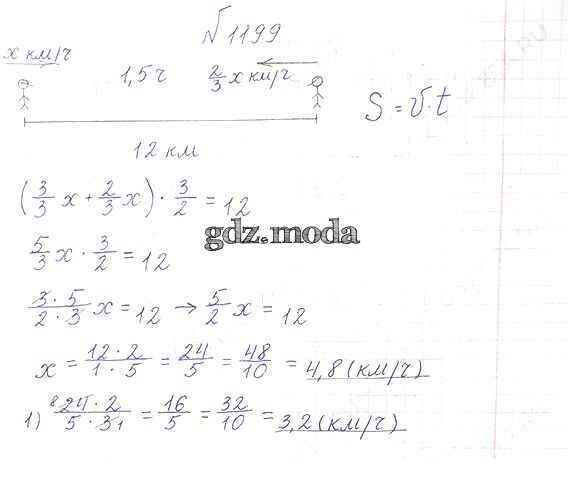 №1199
x км/ч
1,5 ч
2/3 x км/ч
S = v·t
12 км
(3/3 x + 2/3 x) · 3/2 = 12
gdz.moda
5/3 x · 3/2 = 12
3·5/2·3 x = 12 → 5/2 x = 12
x = 12·2/1·5 = 24/5 = 48/10 = 4,8 (км/ч)
1) ⁸24·2/5·3₁ = 16/5 = 32/10 = 3,2 (км/ч)